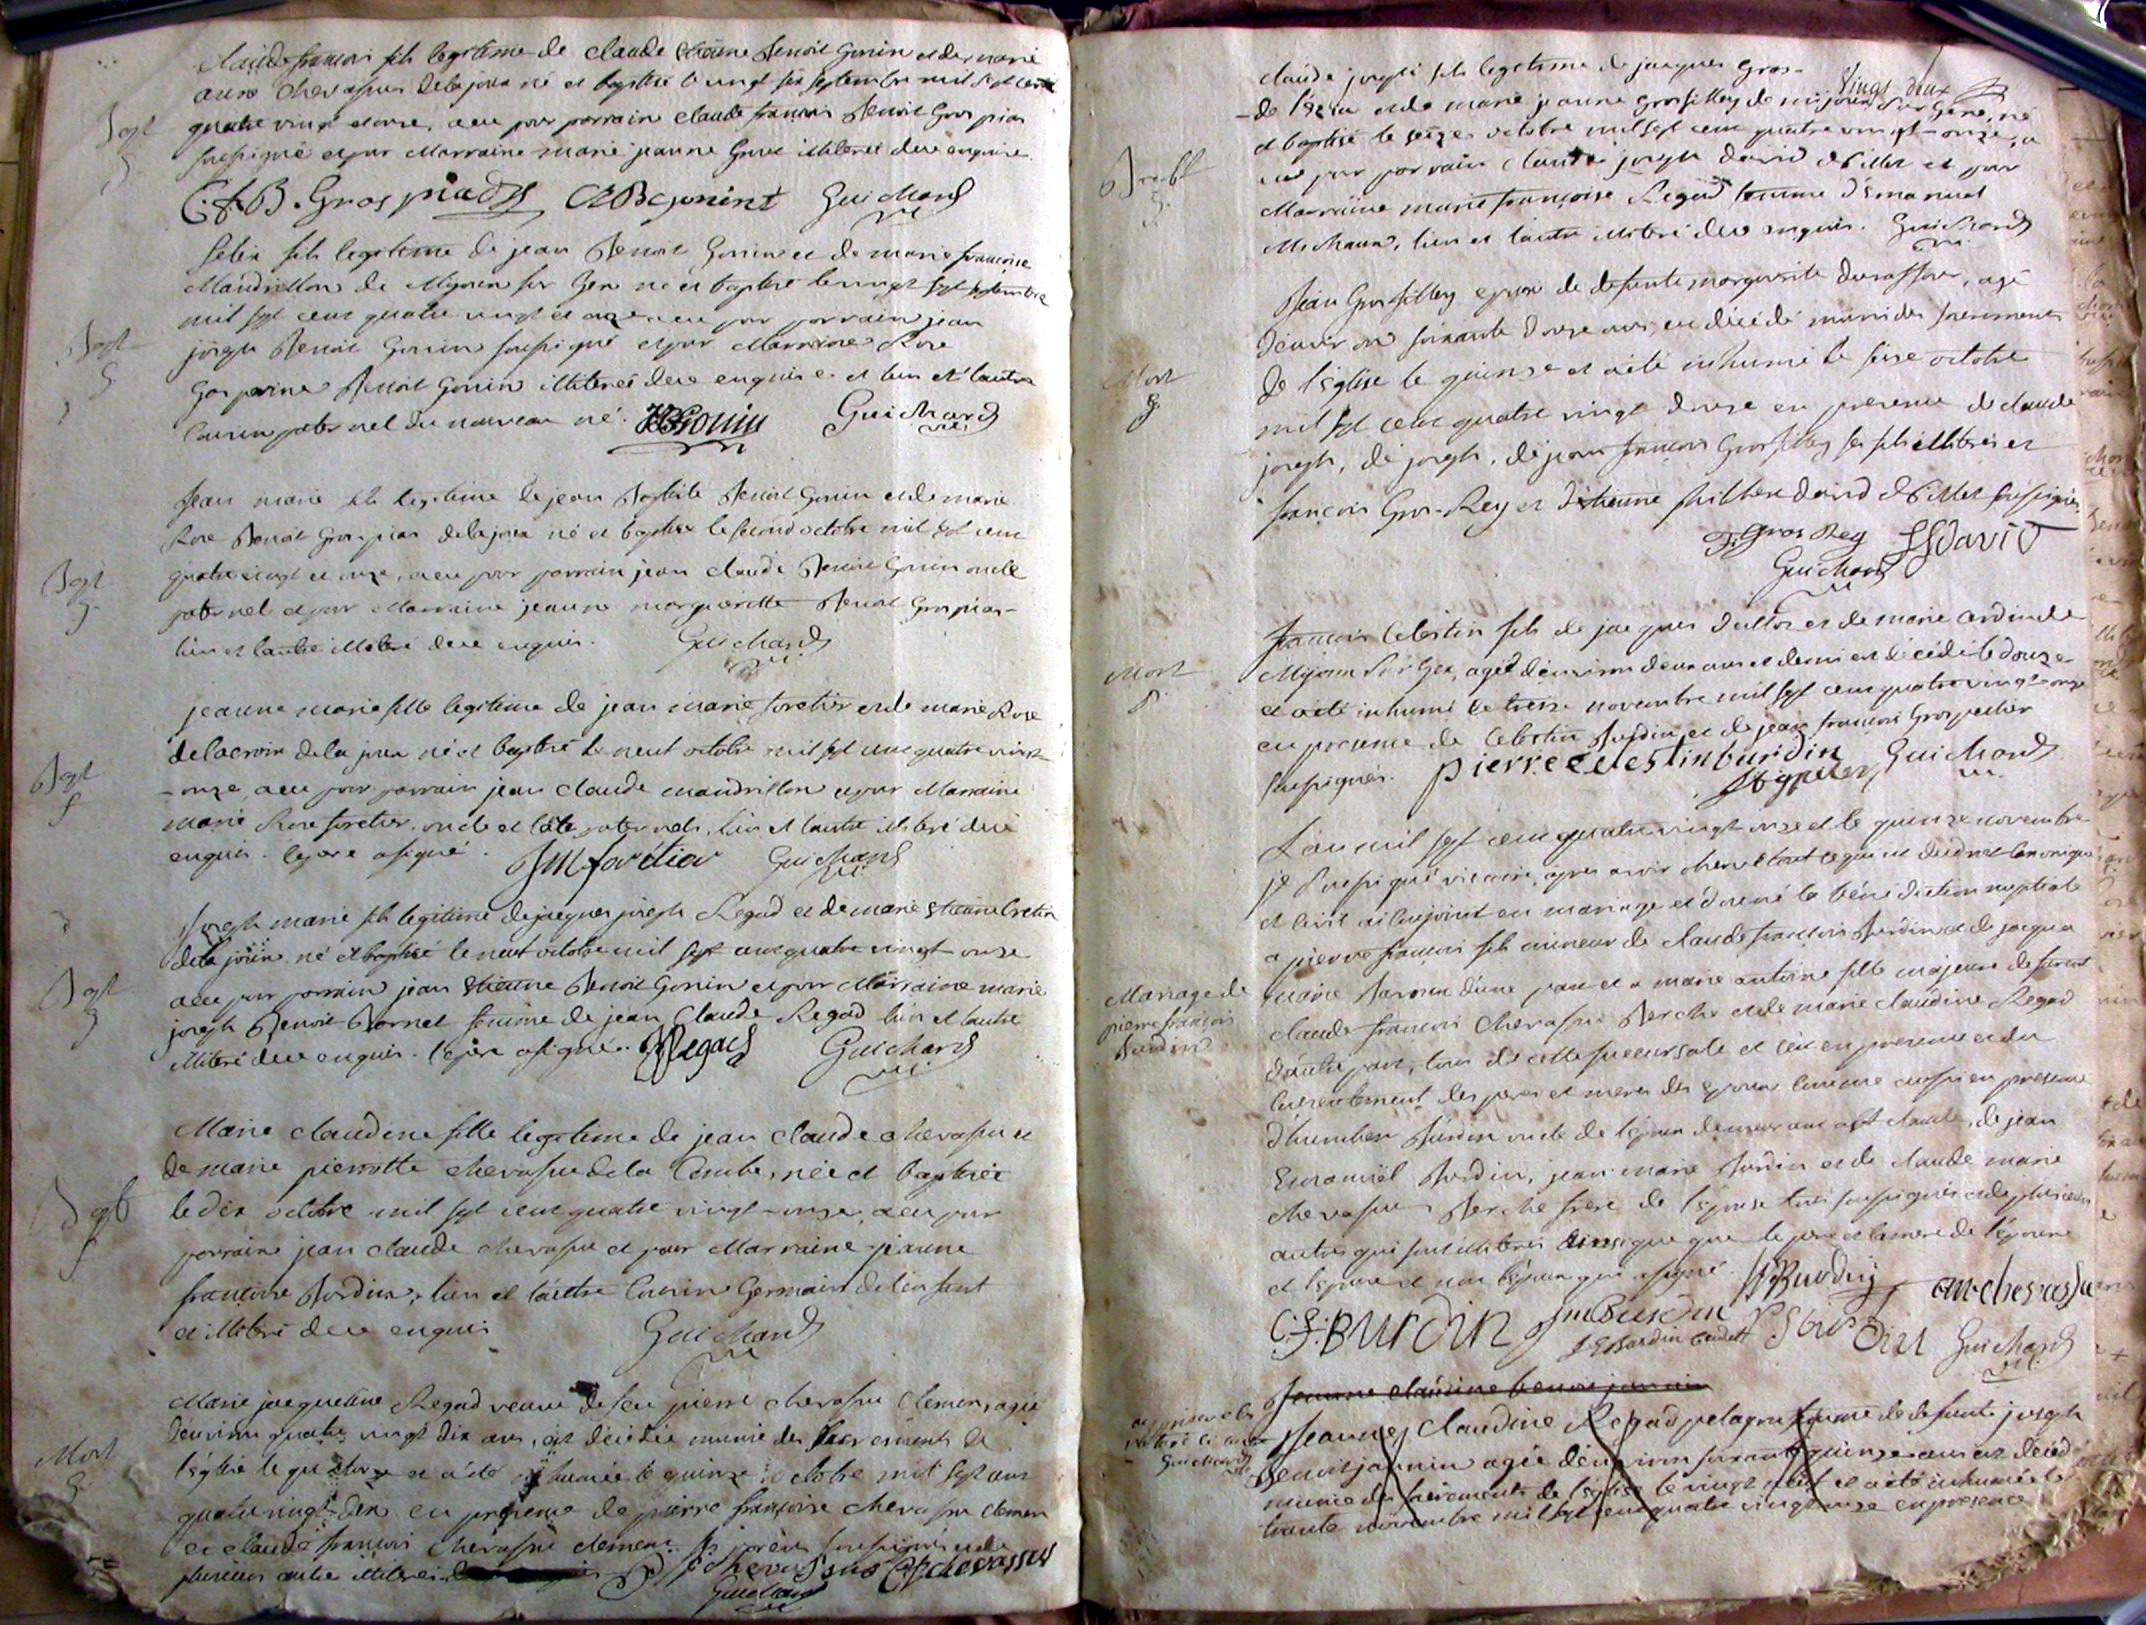 claude francois fils legitime de claude etienne Benoit Gonin et de marie
anne chevassus de la joux né et baptisé le vingt six septembre mil sept cent
quatre vingt et onze, a eu pour parrain claude francois Benoit Gros pias
soussigné et pour Marraine marie jeanne illiterée deue enquise.
Bapt
C.f.B. Grospiads Guichard
vic.
felix fils legitime de jean Benoit Gonin et de marie francoise
Mandrillon de Mijoux sur Gex né et baptisé le vingt sept septembre
mil sept cent quatre vingt et onze a eu pour parrain jean
Bapt
joseph Benoit Gonin soussigné et pour Marraine Rose
Benoit Gonin illiterée deue enquise et l'un et l'autre
cousin paternel du nouveau né. Guichard
vic.
Jean marie fils legitime de jean Baptiste Benoit Gonin et de marie
Rose Benoit Gros pias de la joux né et baptisé le second octobre mil sept cent
Bapt
quatre vingt et onze, a eu pour parrain jean claude Benoit Gonin oncle
paternel et pour Marraine jeanne margueritte Benoit Gros pias
l'un et l'autre illiteré deue enquis. Guichard
vic.
jeanne marie fille legitime de jean marie foretier et de marie Rose
delacroix de la joux né et baptisé le neuf octobre mil sept cent quatre vingt
Bapt
- onze, a eu pour parrain jean claude mandrillon et pour Marraine
marie Rose foretier, oncle et tante paternels, l'un et l'autre illiteré deue
enquis. le pere a signé. JM forétier Guichard
vic.
Joseph marie fils legitime de jacques joseph Regad et de marie etienne
de la joux né et baptisé le neuf octobre mil sept cent quatre vingt onze
Bapt
a eu pour parrain jean etienne Benoit Gonin et pour Marraine marie
joseph Benoit Bornet femme de jean Claude Regad l'un et l'autre
illiteré deue enquis. le pere a signé. Regad Guichard
vic.
Marie claudine fille legitime de jean claude chevassu et
de marie pierrotte chevassu de la Combe, née et baptisée
Bapt
le dix octobre mil sept cent quatre vingt onze, a eu pour
parrain jean claude chevassu et pour Marraine jeanne
francoise Burdin, l'un et l'autre Cousin Germain de l'enfant
et illiteré deue enquis Guichard
vic.
Marie jacqueline Regad veuve de feu pierre chevassu Clement, agée
d'environ quatre vingt dix ans, est décédée munie des sacrements de
Mort
l'église le quatorze et a été inhumée le quinze octobre mil sept cent
quatre vingt dix en presence de pierre françoise chevassu clement
et claude francois chevassu clement soussignés et de
plusieurs autre illiterés chevassus CF chevassus
Guichard
claude joseph fils legitime de jacques Gros
vingt deux
de et de marie jeanne Grosfilley de mijoux sur Gex, né
et baptisé le seize octobre mil sept cent quatre vingt onze, a
eu pour parrain claude joseph david et pour
Marraine marie françoise Regad femme d'Emanuel
Michaux, l'un et l'autre illiteré deue enquis. Guichard
vic.
Jean Grosfilley epoux de defunte marguerite, agé
Mort
d'environ soixante douze ans, est décédé muni des sacrements
de l'église le quinze et a été inhumé le seize octobre
mil sept cent quatre vingt douze en presence de claude
joseph, de joseph, de jean francois Grosfilley ses fils illiterés et
françois Gros-Rey et d'étienne philibert david soussignés.
f. gros Rey david
Guichard
vic.
Mort
francois Celestin fils de jacques et de marie de
Mijoux sur Gex, agé d'environ deux ans et demi est décédé le douze
et a été inhumé le treize novembre mil sept cent quatre vingt onze
en presence de Celestin Burdin et de jean francois Grospellier
soussignés. pierre celestin burdin Guichard
vic.
L'an mil sept cent quatre vingt onze et le quinze novembre
je soussigné vicaire, apres avoir observé tout ce qui est du droit canonique
et civil ai conjoint en mariage et donné la bénédiction nuptiale
a pierre francois fils mineur de claude francois Burdin et de jacqua
Mariage de
pierre francois
Burdin
marie d'une part et a marie antoine fille majeure de
claude francois Chevassu Perche et de marie claudine Regad
d'autre part, tous de cette succursale et ce en presence et du
consentement des peres et meres des epoux comme aussi en presence
d'humbert Burdin oncle de l'epoux demeurant a St Claude, de jean
Emanuel Burdin, jean marie Burdin et de claude marie
chevassus Perche frere de l'epouse tous soussignés et de plusieurs
autres qui sont illiterés que le pere et la mere de l'épouse
et l'epouse et non l'époux qui a signé. Burdin chevassu
C.f. BURDIN jm Burdin Guichard
vic.
Jeanne claudine benoit jannin
Jeanne Claudine Regad pelagru femme de defunt joseph
Guichard
Benoit jannin agée d'environ soixante quinze ans est decedée
munie des sacrements de l'église le vingt neuf et a été inhumée le
trente novembre mil sept cent quatre vingt onze en presence